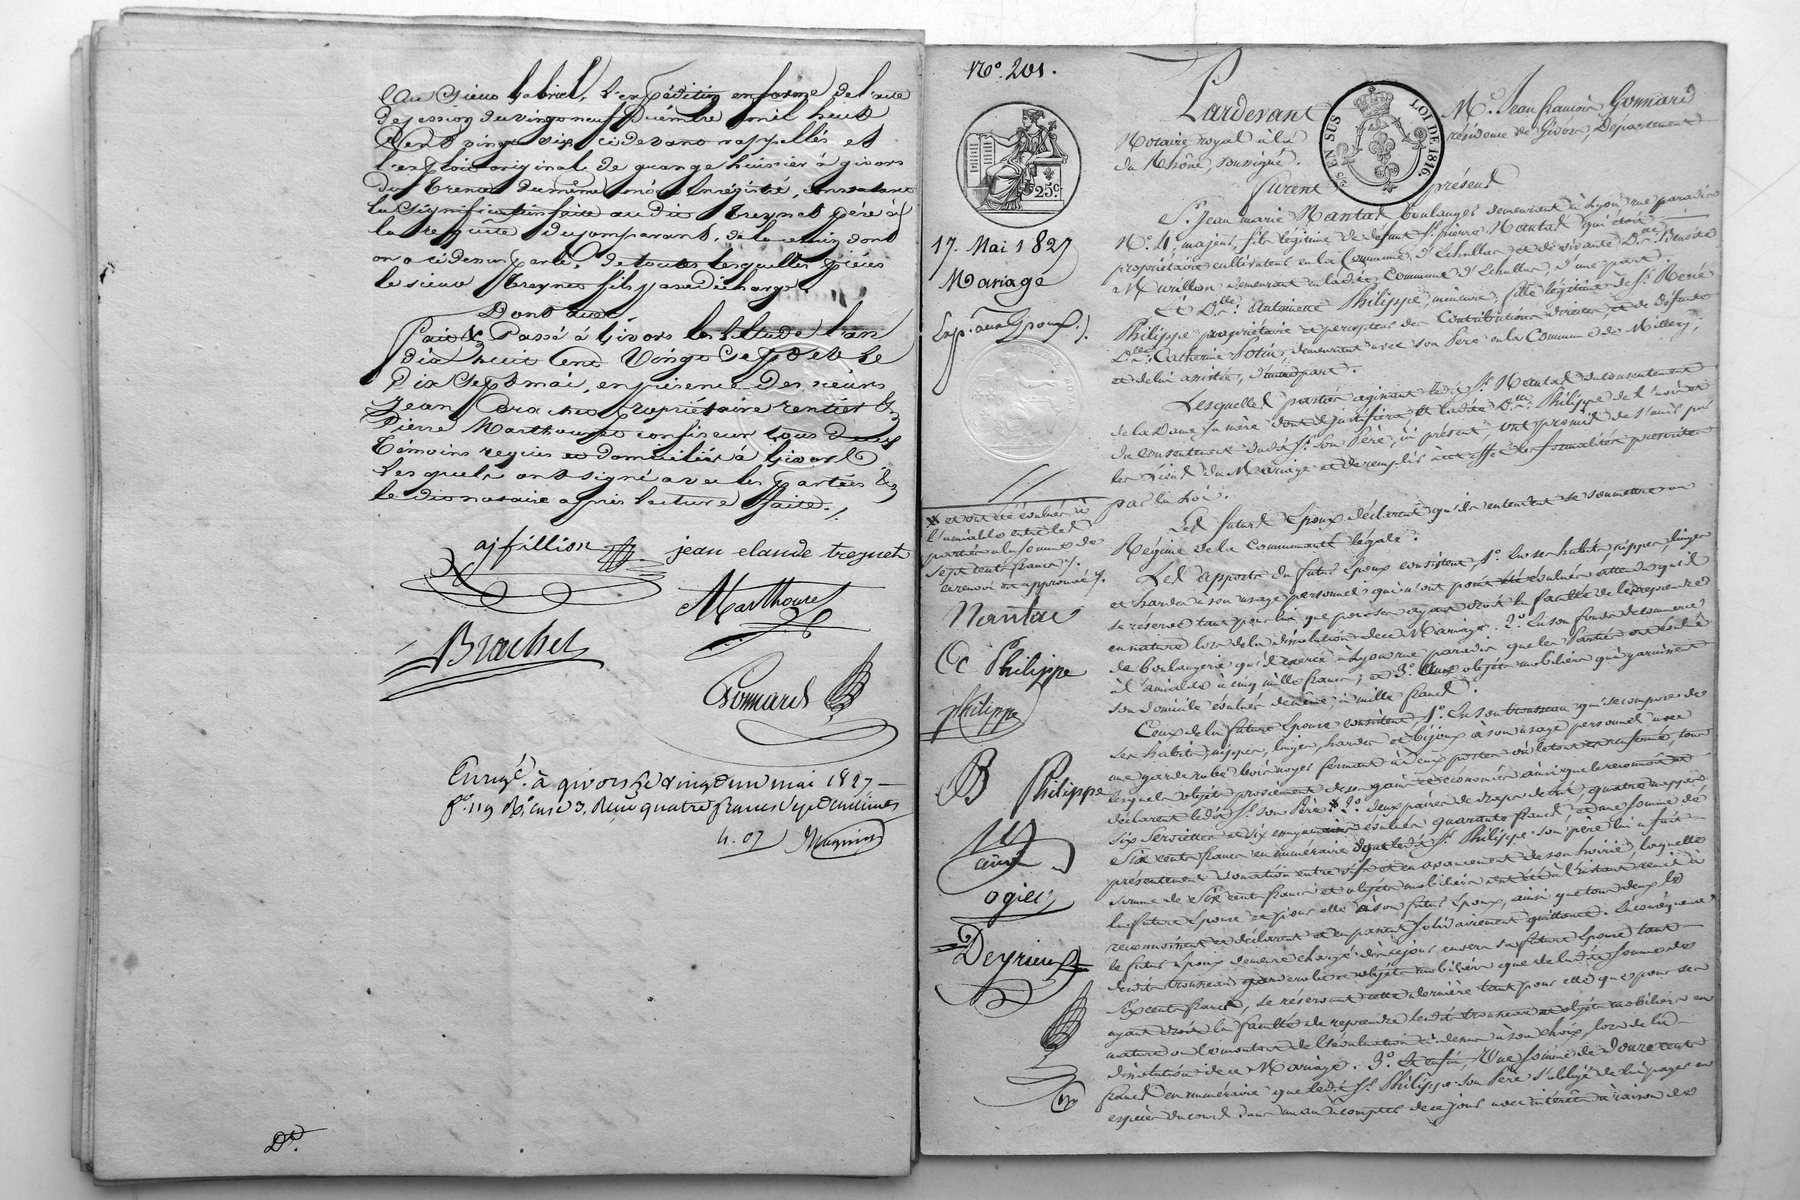 Au sieur Gabriel, l'expédition en forme de l'acte
de cession du vingt neuf Décembre mil huit
Cent vingt six ci devant rappellés et
l'exploit original de Grange huissier à Givors
du trente du même mois Enregistré, constatant
la signification faite au dit Treynet père à
la requête du comparant, de la cession dont
on a ci dessus parlé, de toutes lesquelles pièces
le sieur Treynet fils
Dont acte
Fait & Passé à Givors En l'Etude l'an
dix huit Cent Vingt Sept & le
Dix Sept mai, en présence des sieurs
Jean Brachet propriétaire rentier &
Pierre Marthouret confiseur tous deux
témoins requis et domiciliés à Givors
lesquels ont signé avec les parties &
le dit notaire après lecture faite./.
ajfillion jean claude treynet
Marthouret
Brachet
Gomard
Enregé. à givors le vingt un mai 1827
fo. 119 Ro. case 3. Reçu quatre francs sept centimes
4. 07
No. 201.
25c
17. Mai 1827
Mariage
Exp. aux Epoux.
X et ont été évalués à
l'amiable entre les
parties à la somme de
sept cents francs
le renvoi est approuvé
Nantas
Philippe
philippe
B Philippe
ogier
Deyrieux
Pardevant Me. Jean françois Gomard
EN SUS LOI DE 1816.
Notaire royal à la résidence de Givors, Département
du Rhône, soussigné.
furent présents
Sr. Jean marie Nantas boulanger demeurant à Lyon rue paradis
No. 4, majeur, fils légitime de défunt Sr. pierre Nantas qui étoit
propriétaire cultivateur en la Commune d'Echallas et de vivante De. Benoite
Murillon demeurant en ladite Commune d'Echallas, d'une part.
Et Dlle. Antoinette Philippe, mineure, fille légitime de Sr. René
Philippe propriétaire et percepteur des Contributions directes, et de défunte
De. Catherine Potin, demeurant avec son Père en la Commune de Millery,
et de lui assistée, d'autre part.
Lesquelles parties agissant ledit Sr. Nantas du consentement
de la Dame sa mère dont il justifiera et ladite Dlle. Philippe de l'avis et
du consentement dudit Sr. son Père, ici présent, ont promis de s'unir par
les liens du Mariage et de remplir à cet effet les formalités prescrites
par la Loi.
Les futurs Epoux déclarent qu'ils entendent se soumettre au
Régime de la Communauté légale.
Les apports du futur Epoux consistent, 1o. En ses habits, nippes, linges
et hardes à son usage personnel, qui n'ont point été évalués attendu qu'il
se réserve tant pour lui que pour ses ayant droit la faculté de les reprendre
en nature lors de la dissolution de ce Mariage. 2o. En son fonds de commerce
de boulangerie qu'il exerce à Lyon rue paradis que les Parties ont évalué
à l'amiable à cinq mille francs; et 3o. Aux objets mobiliers qui garnissent
son domicile évalués de même à mille francs.
Ceux de la future Epouse consistent, 1o. En son trousseau qui se compose de
ses habits, nippes, linges, hardes et bijoux à son usage personnel avec
une garderobe bois noyer fermant à deux portes où le tout est renfermé, tous
lesquels objets proviennent de ses gains et économies ainsi que le reconnoit et
déclarent ledit Sr. son Père. X 2o. deux paires de draps de lit, quatre nappes,
six serviettes et six essuyemains évalués quarante francs, et une somme de
Six cents francs en numéraire dont ledit Sr. Philippe son père lui a fait
présentement donation entre vifs et en avancement de son hoirie, laquelle
somme de six cent francs et objets mobiliers ont été à l'instant remis à
la future Epouse et pour elle à son futur Epoux, ainsi que tous deux le
reconnoissent et déclarent et en passent solidairement quittance. En conséquence
le futur Epoux demeure chargé dès ce jour envers sa future Epouse tant
dudit trousseau garderobe et objets mobiliers que de ladite somme de
Six cents francs, se réservant cette dernière tant pour elle que pour ses
ayant droit la faculté de reprendre ledit trousseau et objets mobiliers en
nature ou le montant de l'évaluation ci dessus à son choix, lors de la
dissolution de ce Mariage. 3o. Et enfin, Une somme de Douze cents
francs en numéraire que ledit Sr. Philippe son Père s'oblige de lui payer en
espèces du cours dans un an à compter de ce jour avec intérêts à raison de